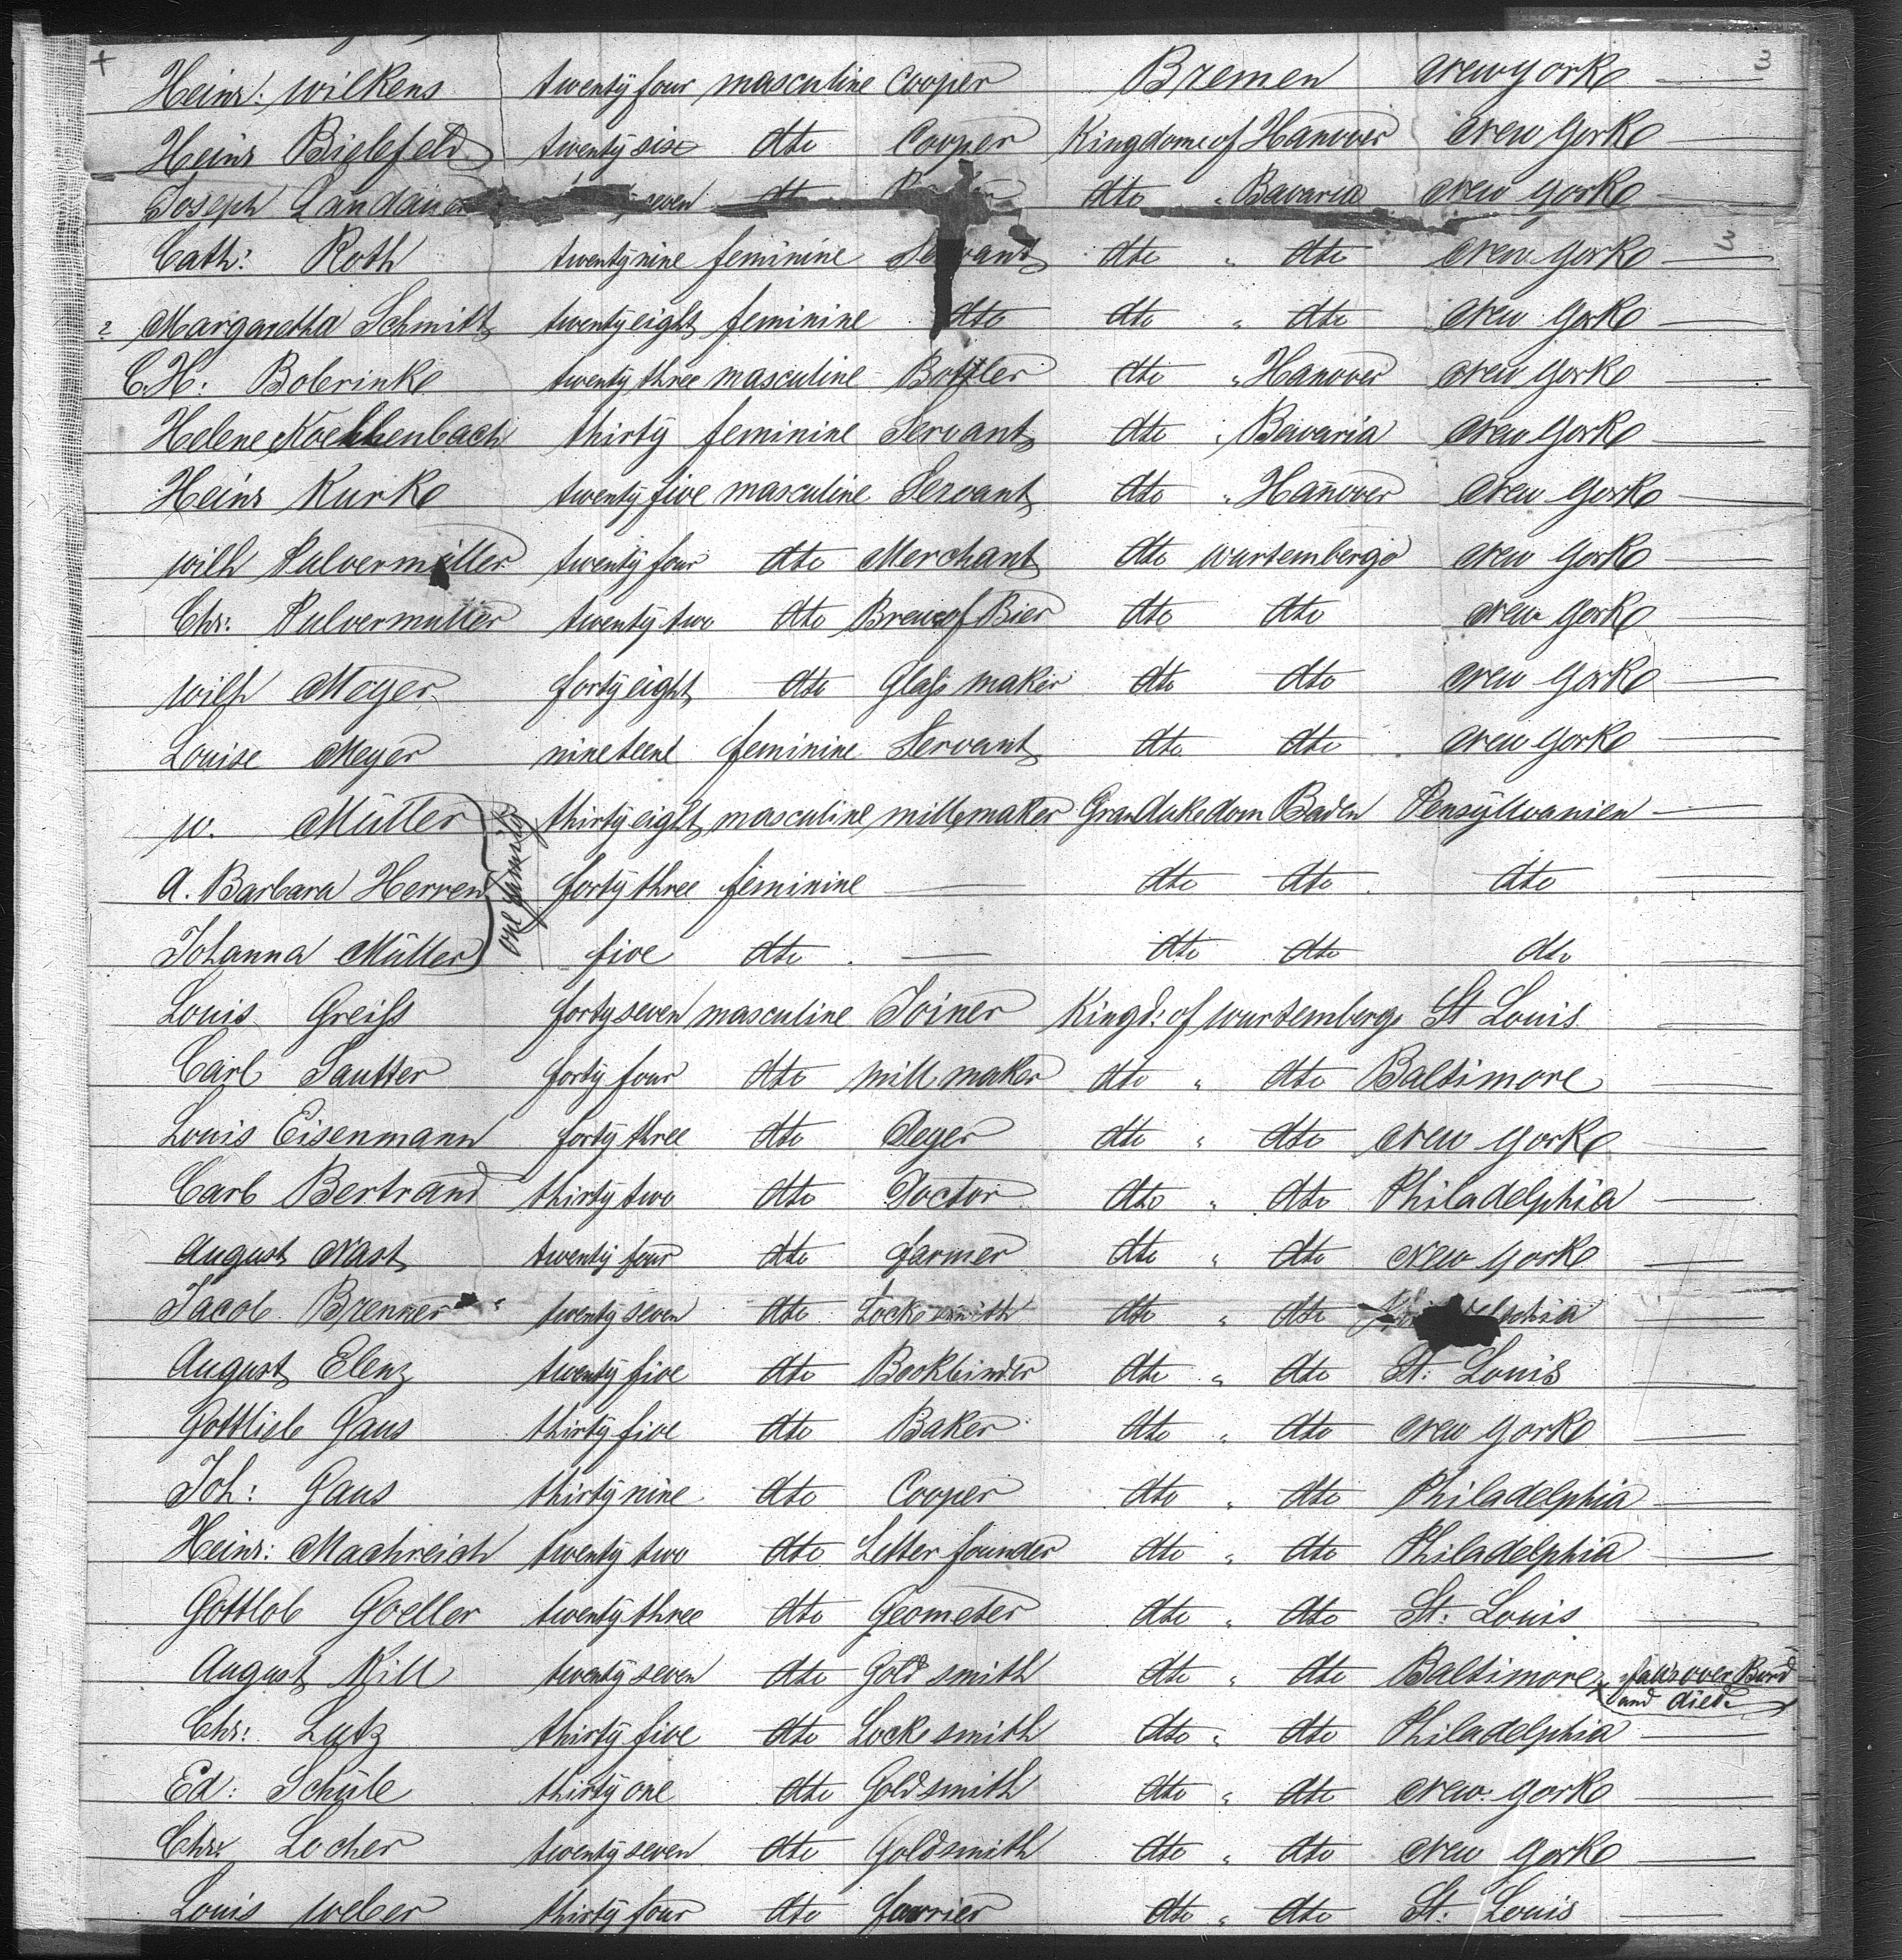 Heinr: Wilkens twenty four masculine Cooper Bremen New York 3
Heinr Bielefeld twenty six dto Cooper Kingdome of Hanover New York
Joseph Landauer seven dto dto " Bavaria New York
Cath: Roth twenty nine feminine Servant dto " dto New York 3
2 Margaretha Schmitt twenty eight feminine dto dto " dto New York
C.H: Boberink twenty three masculine Bottler dto " Hanover New York
Helene thirty feminine Servant dto " Bavaria New York
Heinr Kurk twenty five masculine Servant dto " Hanover New York
Wilh Pulvermüller twenty four dto Merchant dto Wurtemberg New York
Chr: Pulvermuller twenty two dto Brew of Bier dto dto New York
Wilh Meyer forty eight dto Glass maker dto dto New York
Louise Meyer nineteen feminine Servant dto dto New York
W. Müller thirty eight masculine mill maker Grandukedom Baden Pensyllvanien
one family
A. Barbara Herren forty three feminine dto dto dto
Johanna Müller five dto dto dto dto
Louis Greiss forty seven masculine Joiner Kingd: of Wurtemberg St Louis
Carl Sautter forty four dto mill maker dto " dto Baltimore
Louis Eisenmann forty three dto Deyer dto " dto New York
Carl Bertrand thirty two dto Doctor dto " dto Philadelphia
August Nast twenty four dto farmer dto " dto New York
Jacob Brenner twenty seven dto Locksmith dto " dto
August Elenz twenty five dto Bookbinder dto " dto St: Louis
Gottlieb Gaus thirty five dto Baker dto " dto New York
Joh: Gaus thirty nine dto Cooper dto " dto Philadelphia
Heinr: Machreich twenty two dto Letter founder dto " dto Philadelphia
Gottlob Goeller twenty three dto Geometer dto " dto St: Louis
August Kill twenty seven dto Gold smith dto " dto Baltimore x falls over Bord
and died.
Chr: Lutz thirty five dto Lock smith dto " dto Philadelphia
Ed: Schüle thirty one dto Goldsmith dto " dto New York
Chr: Locher twenty seven dto Goldsmith dto " dto New York
Louis Weber thirty four dto furrier dto " dto St: Louis